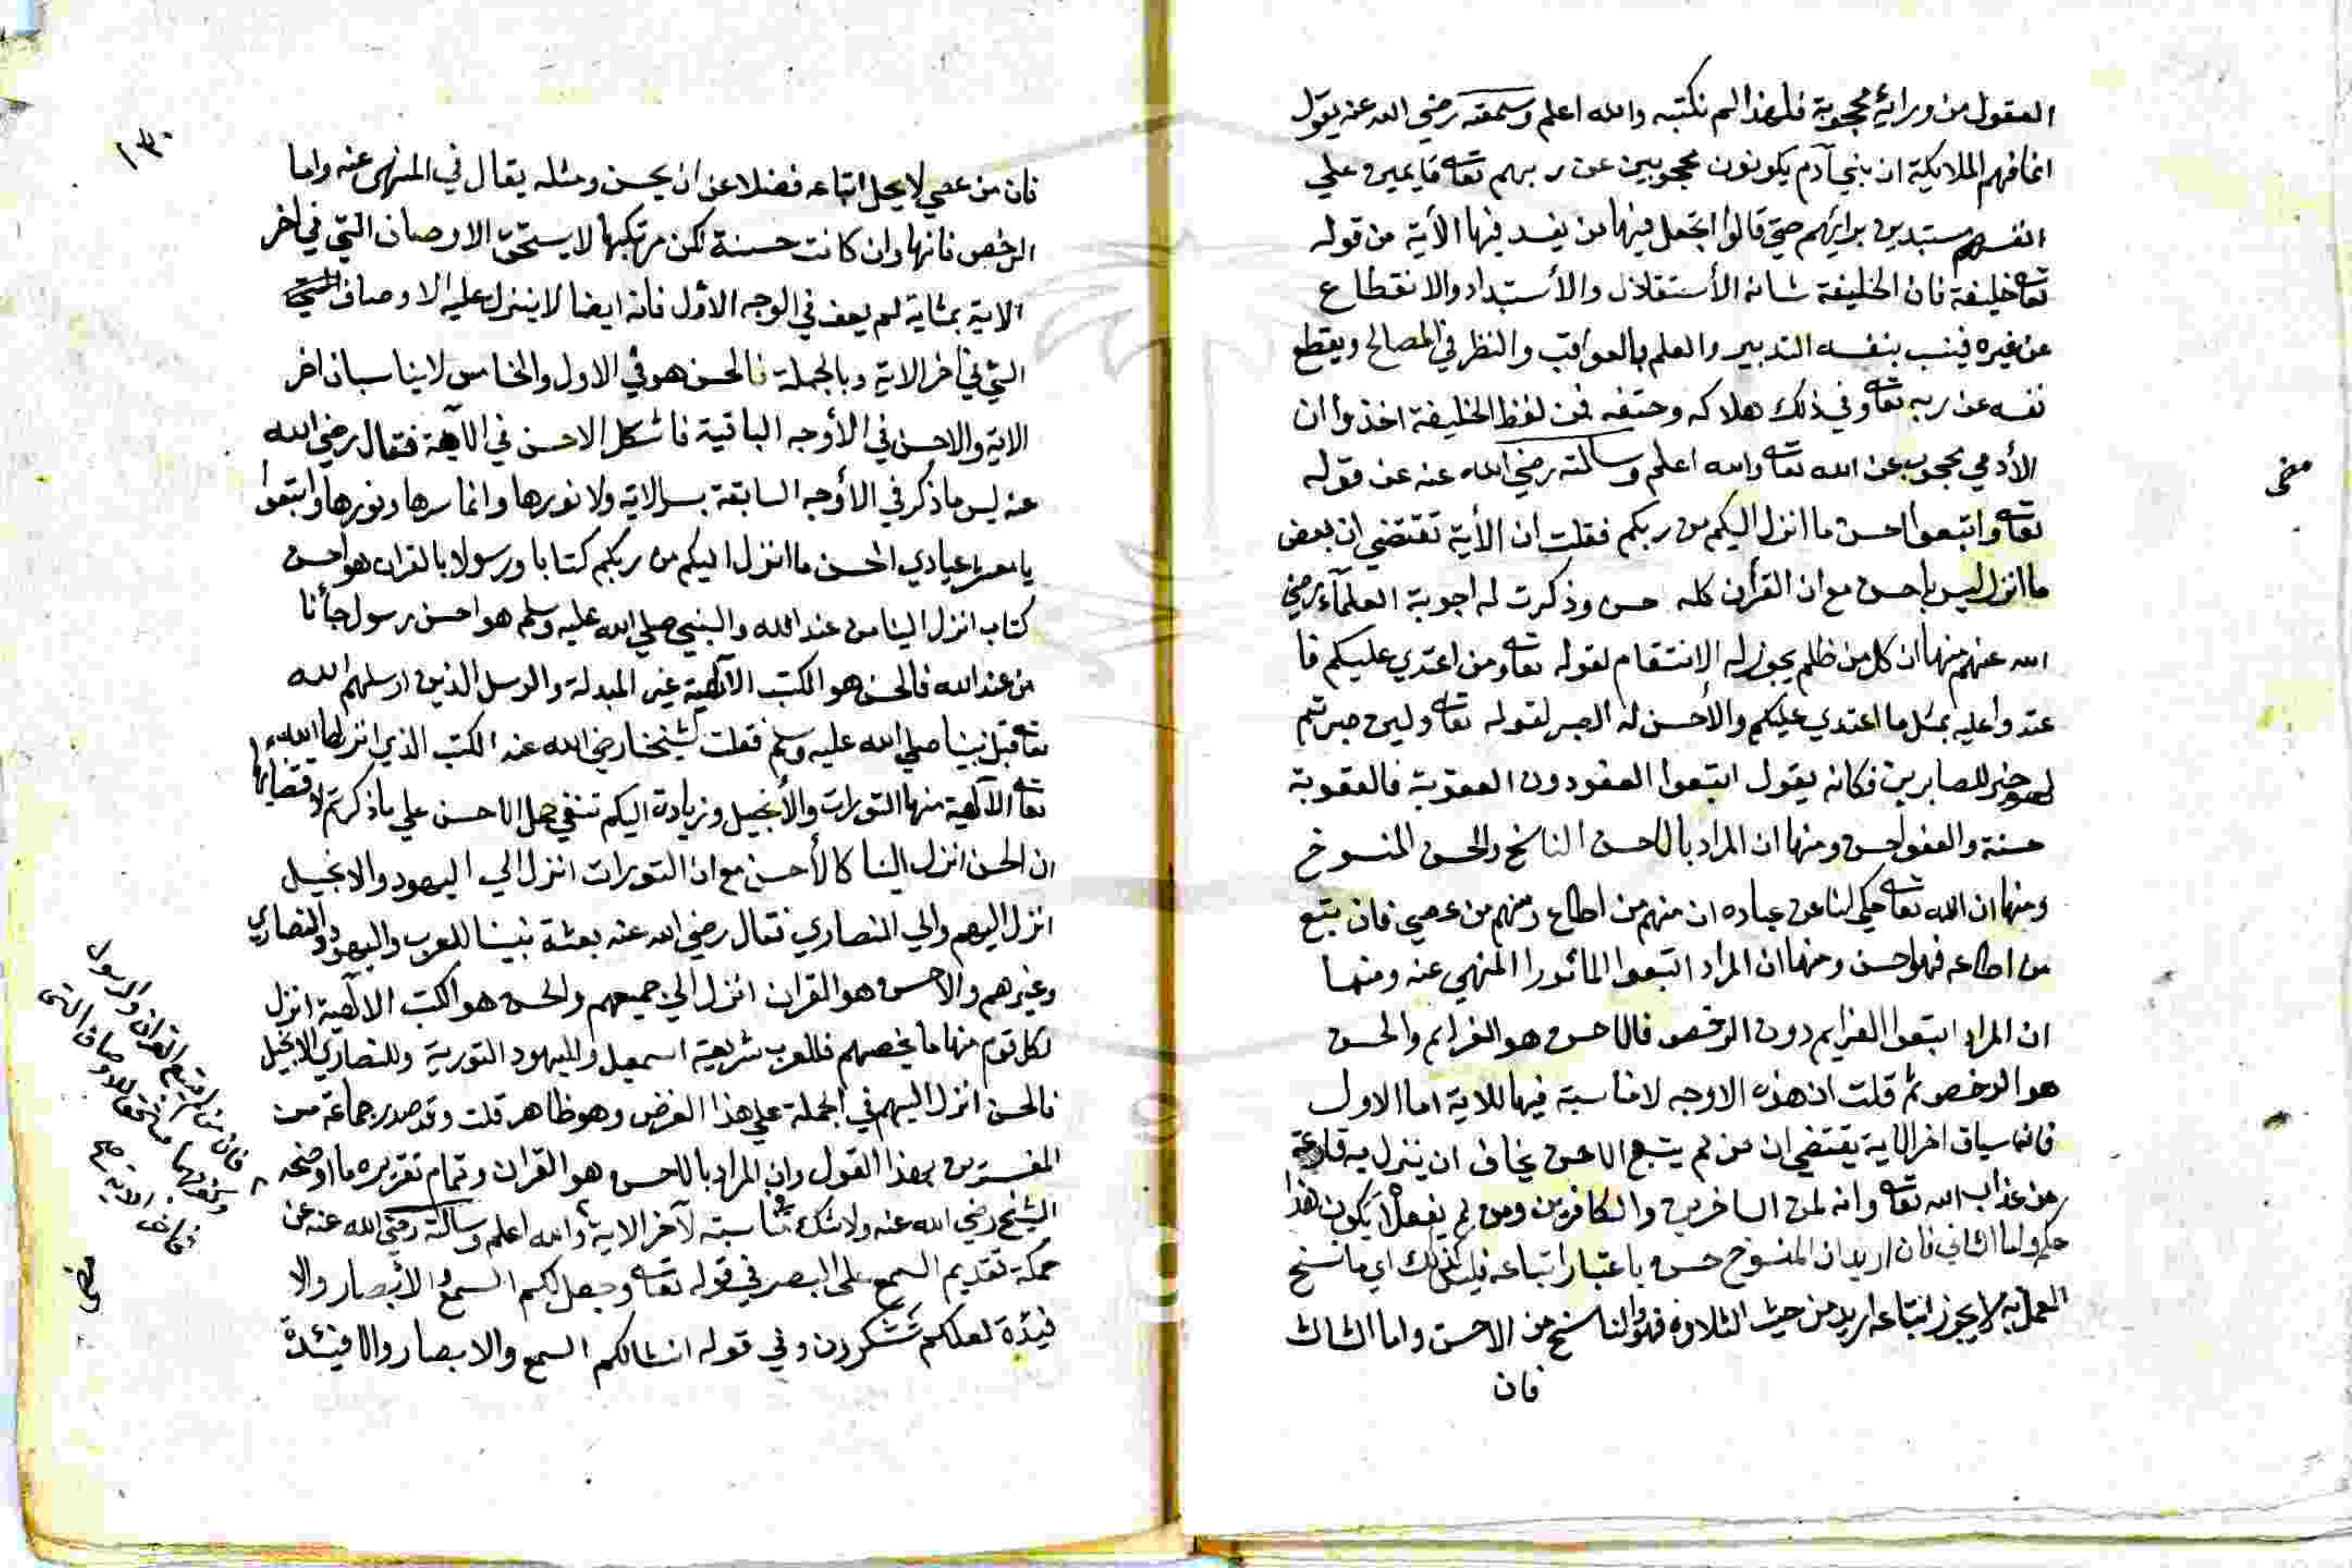 العقول من ورائه محجوبة فلهذا لم نكتبه والله اعلم وسمعته رضي الله عنه يقول
انما فهم الملائكة ان بني آدم يكونون محجوبين عن ربهم تعالى قايمين علي
انفسهم مستبدين برايهم حتى قالوا اتجعل فيها من يفسد فيها الآية من قوله
تعالى خليفة فان الخليفة شانه الأستقلال والأستبداد والانقطاع
عن غيره فينسب بنفسه التدبير والعلم بالعواقب والنظر في المصالح ويقطع
نفسه عن ربه تعالى وفي ذلك هلاكه وحتفه فمن لفظ الخليفة اخذوا ان
الأدمي محجوب عن الله تعالى والله اعلم وسالته رضي الله عنه عن قوله
مخى
تعالى واتبعوا احسن ما انزل اليكم من ربكم فقلت ان الأية تقتضي ان بعض
ما انزل ليس بأحسن مع ان القرأن كله حسن وذكرت له اجوبة العلمآء رضي
الله عنهم منها ان كل من ظلم يجوز له الانتقام لقوله تعالى ومن اعتدي عليكم فا
عتدوا عليه بمثل ما اعتدي عليكم والأحسن له الصبر لقوله تعالى ولين صبرتم
لهو خير للصابرين فكانه يقول اتبعوا العفو دون العقوبة فالعقوبة
حسنة والعفو احسن ومنها ان المراد بالاحسن الناسخ والحسن المنسوخ
ومنها ان الله تعالى حكي لنا عن عباده ان منهم من اطاع ومنهم من عصي فان يتبع
من اطاعه فهو احسن ومنها ان المراد اتبعوا الماثورا المنهي عنه ومنها
ان المراد اتبعوا العزايم دون الرخص فالاحسن هو العزايم والحسن
هو الرخص ثم قلت ان هذه الاوجه لا مناسبة فيها للاية اما الاول
فانه سياق اخر الاية يقتضي ان من لم يتبع الاحسن يخاف ان ينزل به قارعة
من عذاب الله تعالى وانه لمن الساخرين والكافرين ومن لم يفعل لا يكون هذا
حكمه واما الثاني فان اريد ان المنسوخ حسن باعتبار اتباعه فليس كذلك اي ما نسخ
العمل به لا يجوز اتباعه اريد من حيث التلاوة فهو والناسخ من الاحسن واما الثالث
فان
١٣٠
فان من عصي لا يحل اتباعه فضلا عن ان يحسن ومثله يقال في المنهى عنه واما
الرخص فانها وان كانت حسنة لكن مرتكبها لا يستحق الاوصاف التي في اخر
الاية بمثاية لم يعف في الوجه الأول فانه ايضا لا ينزل عليه الاوصاف التي
التي في اخر الاية وبالجملة فالحسن هو في الاول والخامس لا يناسبان اخر
الاية والاحسن في الأوجه الباقية فاشكل الاحسن في الآية فقال رضي الله
عنه ليس ما ذكر في الأوجه السابقة بسر الاية ولا نورها وانما سرها ونورها واتبعوا
يا معشر عبادي احسن ما انزل اليكم من ربكم كتابا ورسولا بالقران هو احسن
كتاب انزل الينا من عند الله والنبي صلي الله عليه وسلم هو احسن رسول جأنا
من عند الله فالحسن هو الكتب الآلهية غير المبدلة والرسل الذين ارسلهم الله
تعالى قبل نبينا صلي الله عليه وسلم فقلت لشيخنا رضي الله عنه الكتب الذي انزلها الله
تعالى الآلهية منها التورات والأنجيل وزيادة اليكم تنفي حمل الاحسن علي ما ذكرتم لاقتضايها
ان الحسن انزل الينا كالأحسن مع ان التورات انزل الي اليهود والانجيل
انزل اليهم والي النصاري فقال رضي الله عنه بعثة نبينا للعرب واليهود والنصاري
وغيرهم والاحسن هو القران انزل الي جميعهم والحسن هو الكتب الالهية انزل
لكل قوم منها ما يخصهم فللعرب شريعة اسمعيل ولليهود التورية وللنصاري الانجيل
فالحسن انزل اليهم في الجملة علي هذا الغرض وهو ظاهر قلت وقد صدر جماعة من
المفسرين بهذا القول وان المراد بالاحسن هو القران وتمام تقريره ما اوضحه
الشيخ رضي الله عنه ولا شك في مناسبته لآخر الاية والله اعلم وسالته رضي الله عنه عن
حكمة تقديم السمع على البصر في قوله تعالى وجعل لكم السمع والأبصار والا
فيدة لعلكم تشكرون وفي قوله انشا لكم السمع والابصار والافيئدة
فان من لم يتبع القران والرسول
وكفر بهما مستحق للاوصاف التي
في اخر الاية صح
مخى